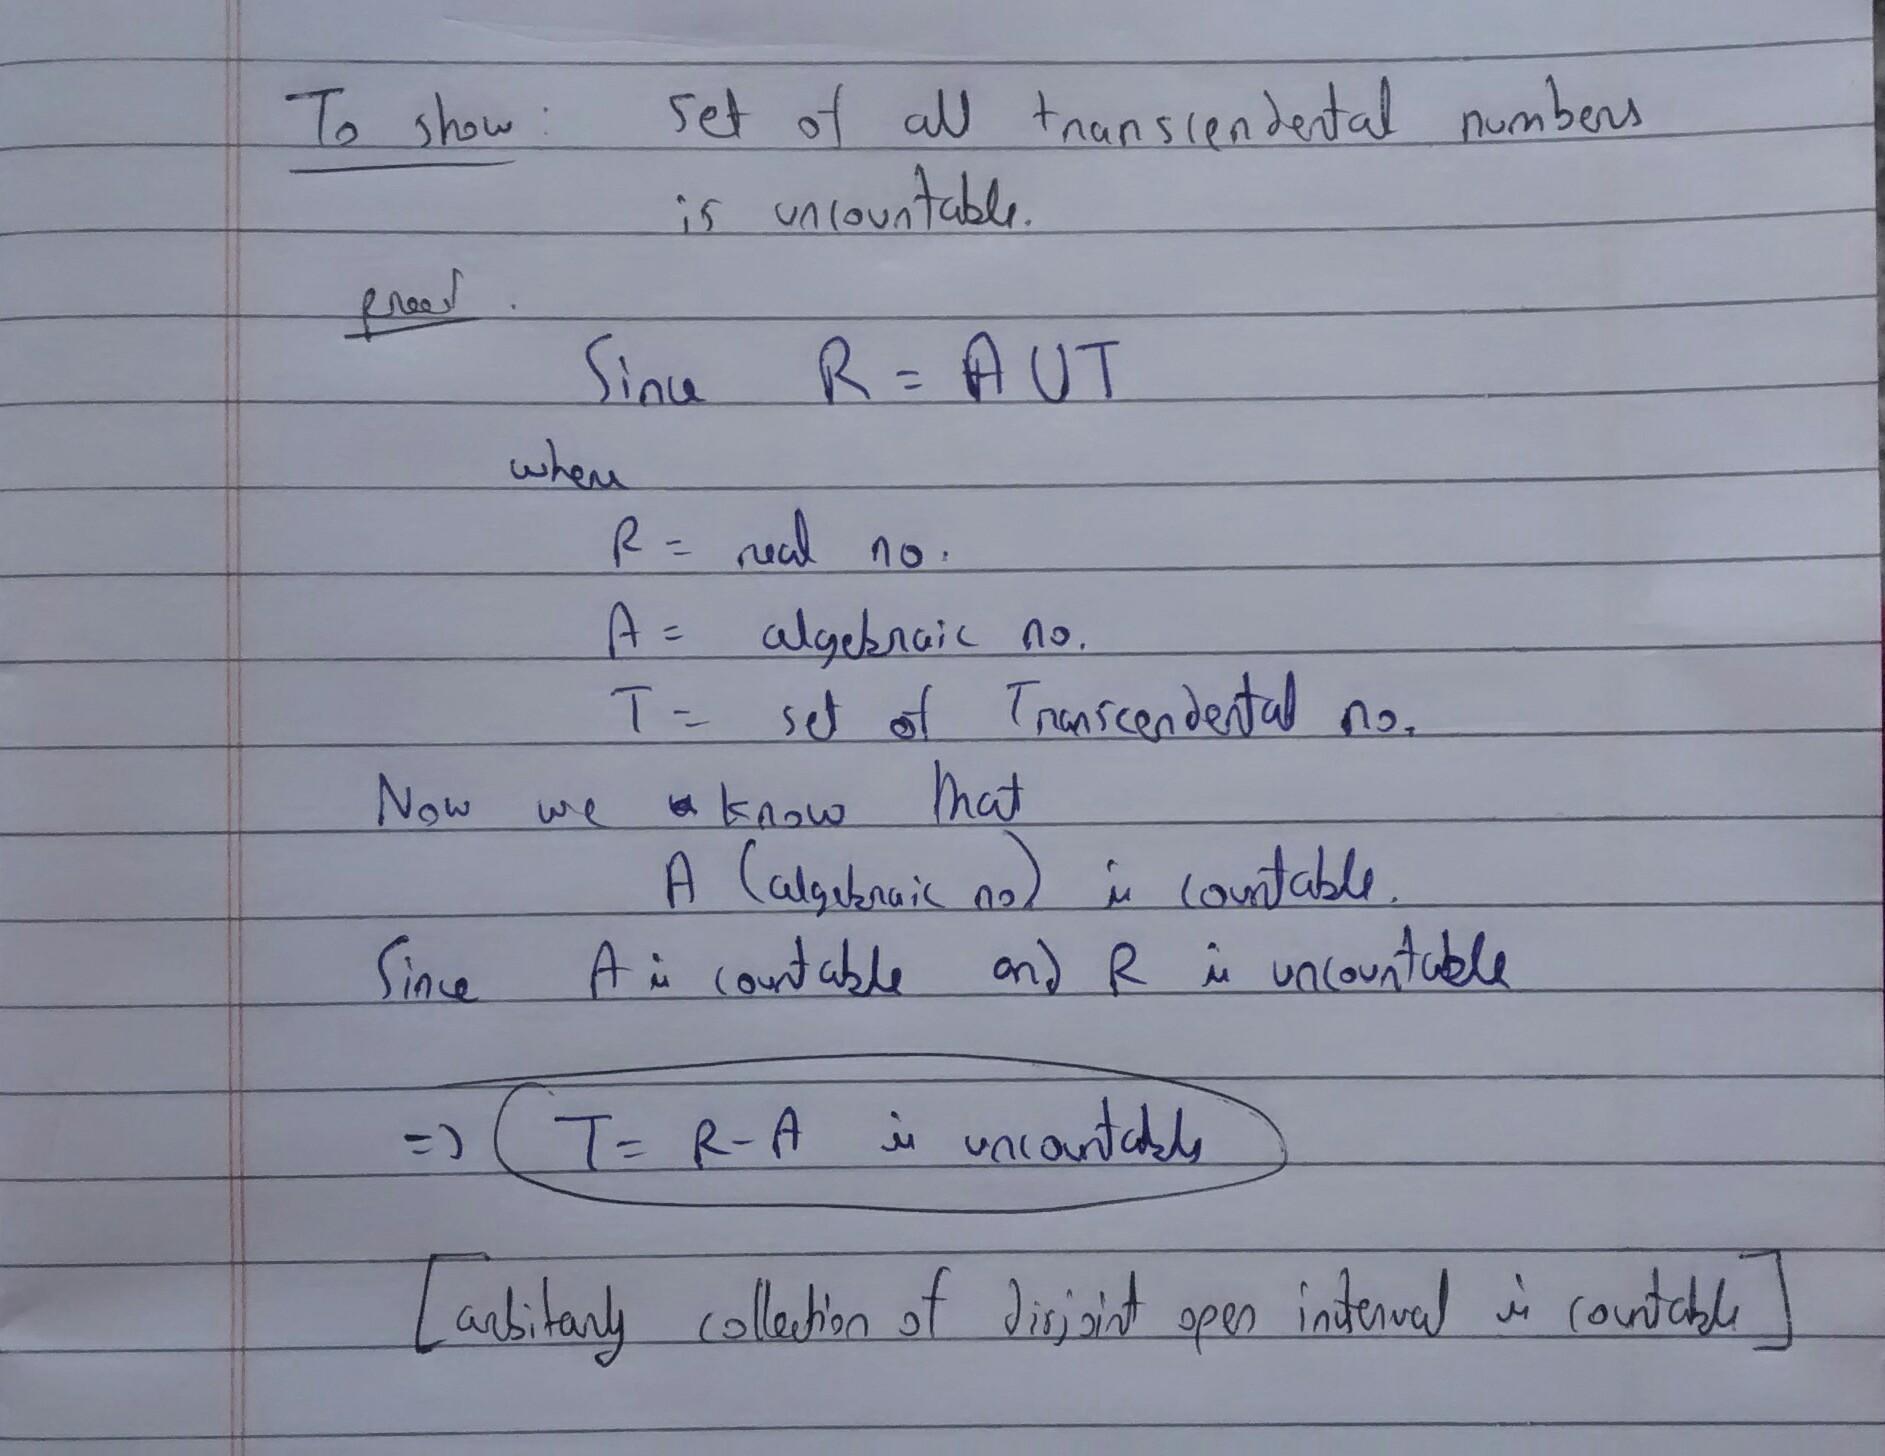 To show: set of all transcendental numbers
is uncountable.
proof.
Since R = A U T
where
R = real no.
A = algebraic no.
T = set of Transcendental no.
Now we know that
A (algebraic no) is countable.
Since A is countable and R is uncountable
=> T = R - A is uncountable
[arbitarly collection of disjoint open interval is countable]